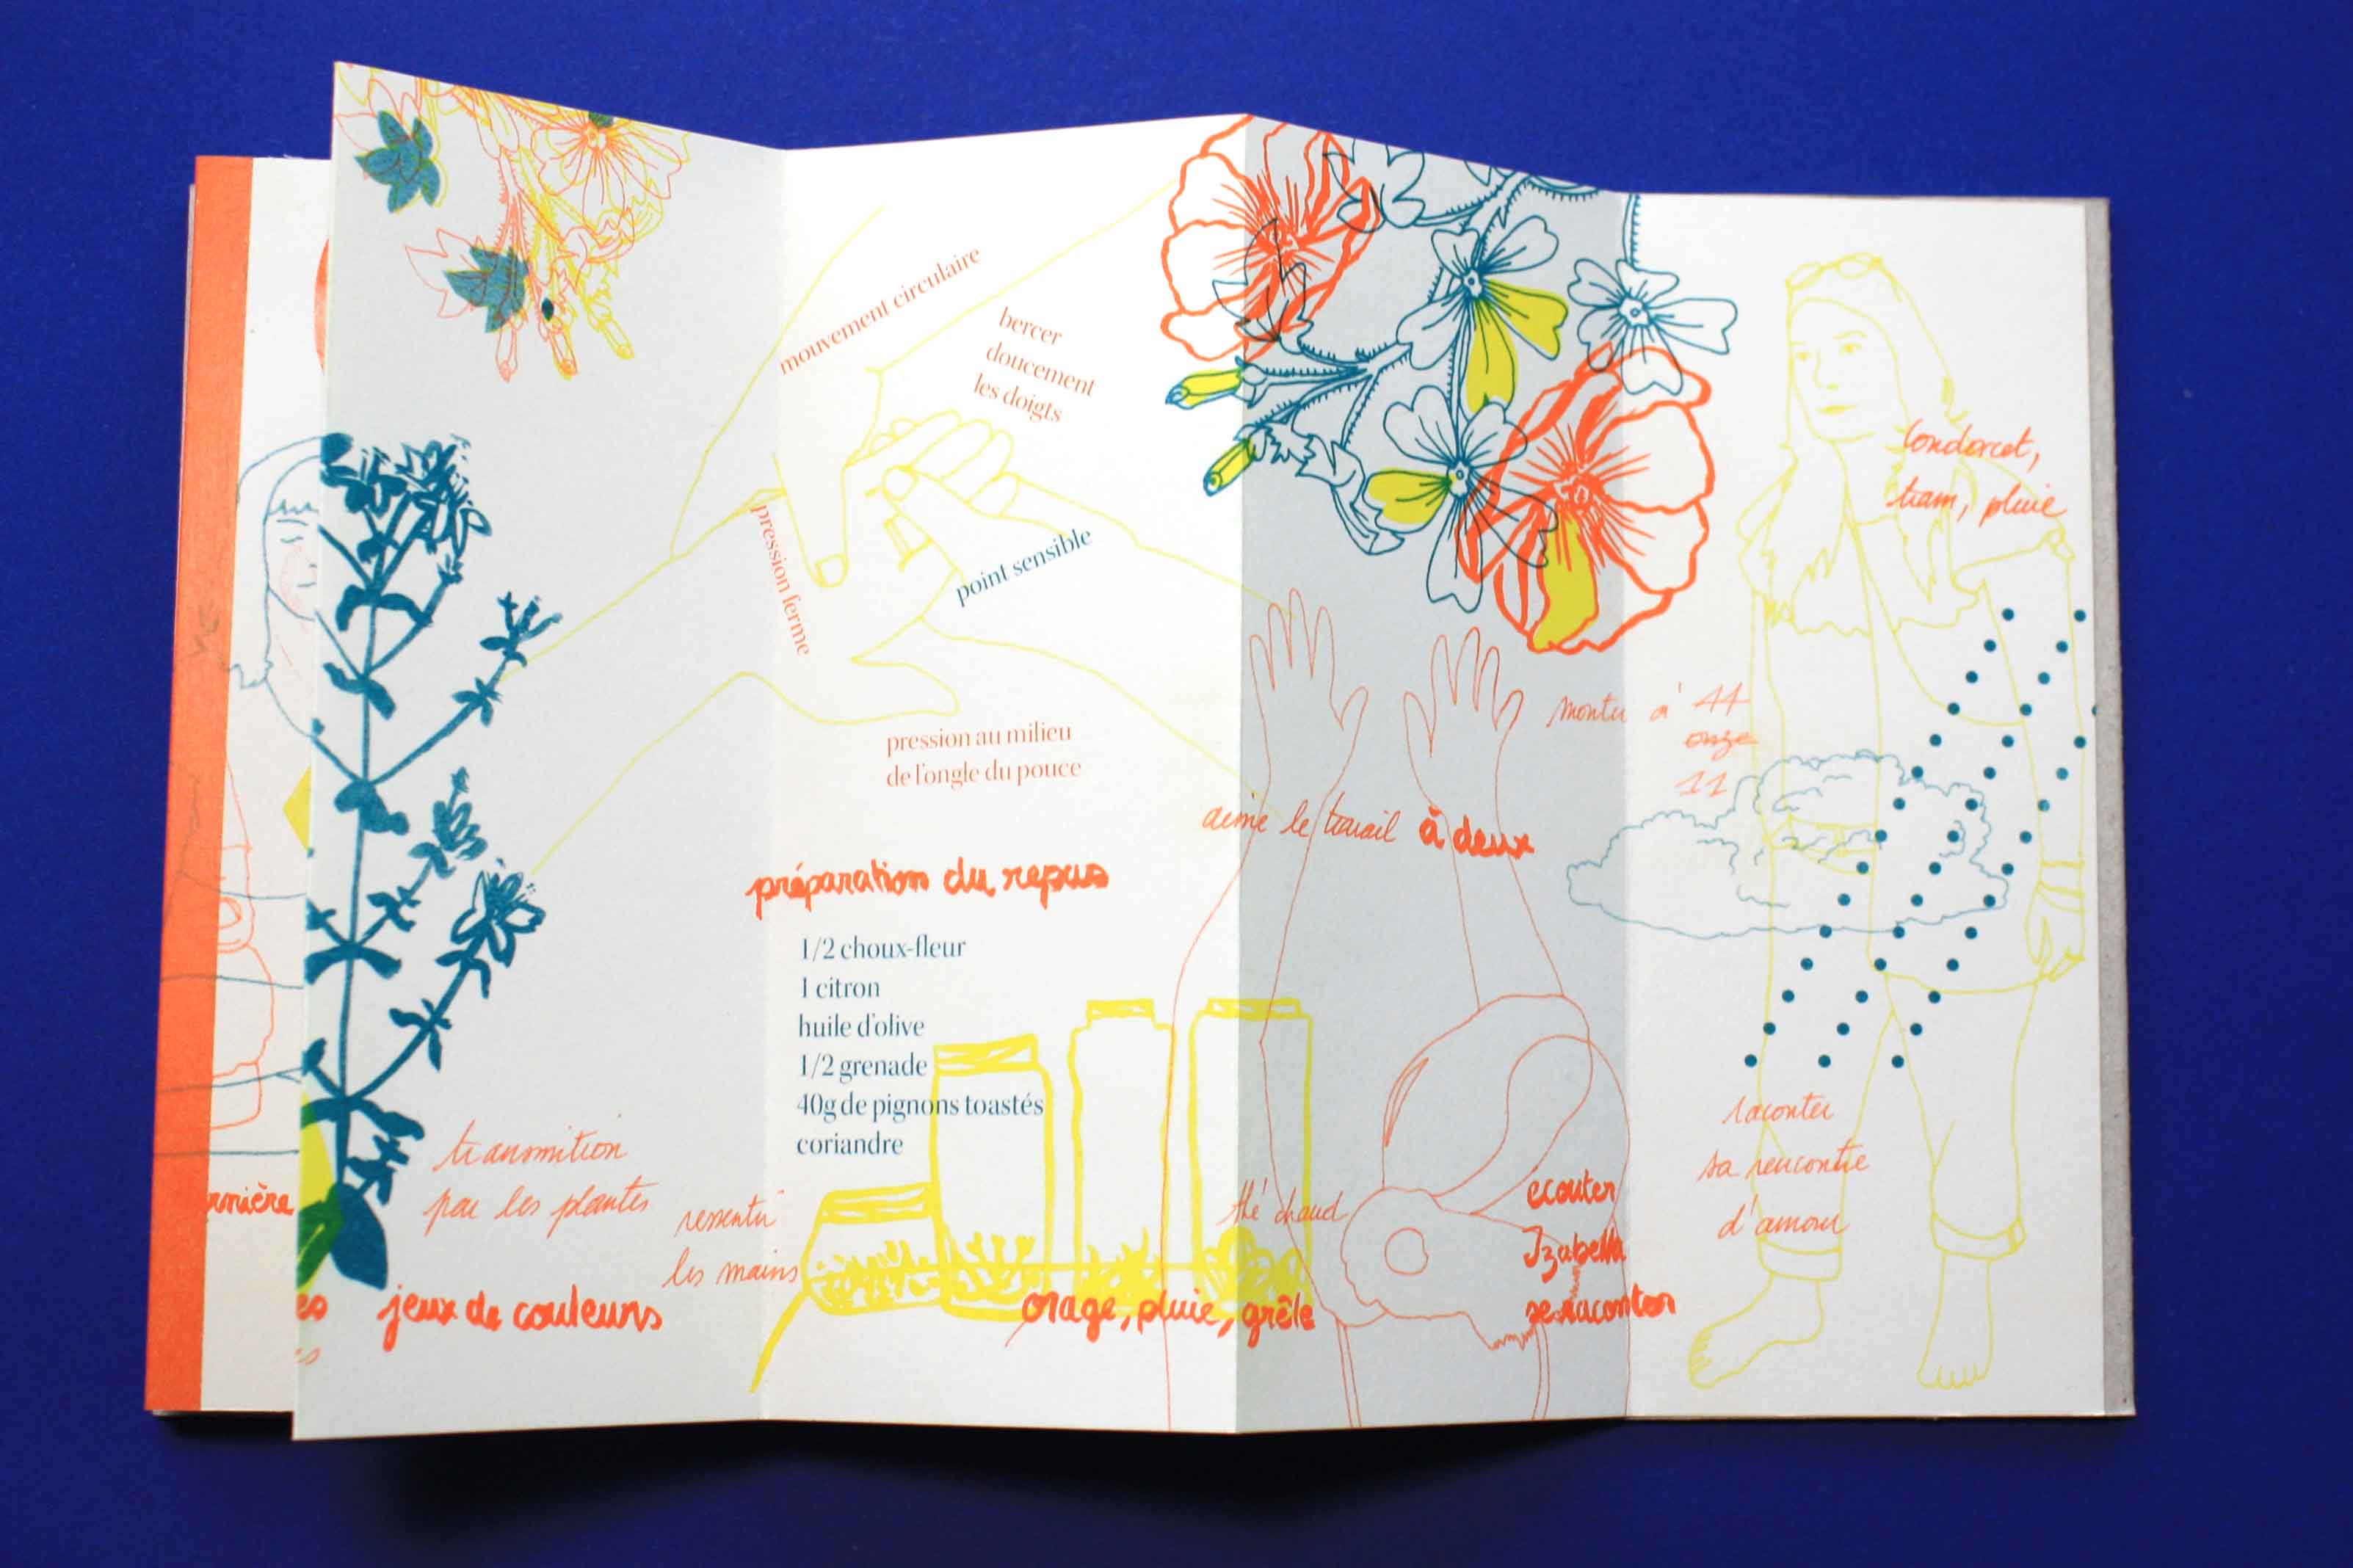 mouvement circulaire
bercer
doucement
les doigts
pression ferme
point sensible
pression au milieu
de l'ongle du pouce
préparation du repas
1/2 choux-fleur
1 citron
huile d'olive
1/2 grenade
40g de pignons toastés
coriandre
rnière
es
transmition
par les plantes
ressentir
les mains
jeux de couleurs
orage, pluie, grêle
thé chaud
aime le travail à deux
ecouter
Izabella
se raconter
Condorcet,
tram, pluie
monter à 11
onze
11
raconter
sa rencontre
d'amour